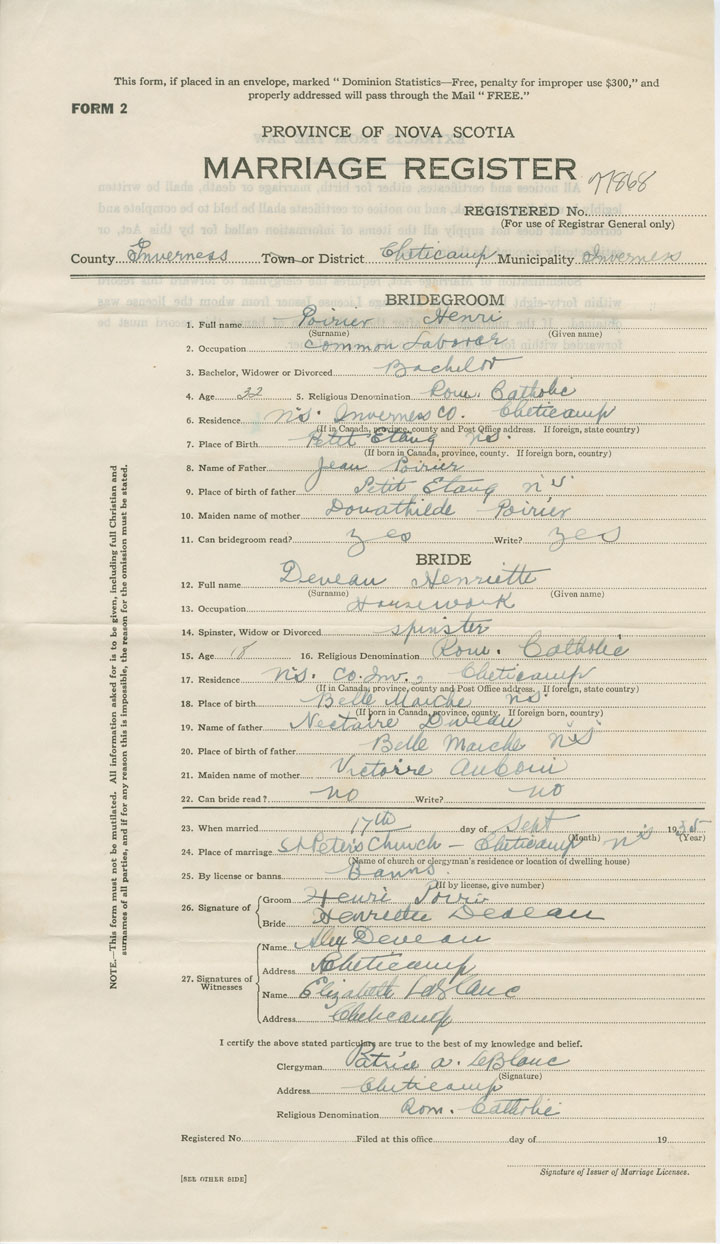 This form, if placed in an envelope, marked " Dominion Statistics—Free, penalty for improper use $300," and
properly addressed will pass through the Mail " FREE."
FORM 2
PROVINCE OF NOVA SCOTIA
MARRIAGE REGISTER
77868
REGISTERED No.
(For use of Registrar General only)
County Inverness Town or District Cheticamp Municipality Inverness
BRIDEGROOM
1. Full name Poirier Henri
(Surname) (Given name)
2. Occupation Common Laborer
3. Bachelor, Widower or Divorced Bachelor
4. Age 32 5. Religious Denomination Rom. Catholic
6. Residence N.S. Inverness Co. Cheticamp
(If in Canada, province, county and Post Office address. If foreign, state country)
7. Place of Birth Petit Etang N.S.
(If born in Canada, province, county. If foreign born, country)
8. Name of Father Jean Poirier
9. Place of birth of father Petit Etang N.S
10. Maiden name of mother Donathilde Poirier
11. Can bridegroom read? yes Write? yes
BRIDE
12. Full name Deveau Henriette
(Surname) (Given name)
13. Occupation Housework
14. Spinster, Widow or Divorced spinster
15. Age 18 16. Religious Denomination Rom. Catholic
17. Residence N.S. Co. Inv., Cheticamp
(If in Canada, province, county and Post Office address. If foreign, state country)
18. Place of birth Belle Marche N.S.
(If born in Canada, province, county. If foreign born, country)
19. Name of father Nectaire Deveau
20. Place of birth of father Belle Marche N.S
21. Maiden name of mother Victoire AuCoin
22. Can bride read? no Write? no
23. When married 17th day of Sept 1935
(Month) (Year)
24. Place of marriage St Peter's Church — Cheticamp N.S
(Name of church or clergyman's residence or location of dwelling house)
25. By license or banns Banns.
(If by license, give number)
26. Signature of Groom Henri
Bride Henriette Deveau
27. Signatures of Witnesses
Name Alex Deveau
Address Cheticamp
Name Elizabeth LeBlanc
Address Cheticamp
I certify the above stated particulars are true to the best of my knowledge and belief.
Clergyman Patrice A. LeBlanc
(Signature)
Address Cheticamp
Religious Denomination Rom. Catholic
Registered No. Filed at this office day of 19
Signature of Issuer of Marriage Licenses.
[SEE OTHER SIDE]
NOTE.—This form must not be mutilated. All information asked for is to be given, including full Christian and
surnames of all parties, and if for any reason this is impossible, the reason for the omission must be stated.